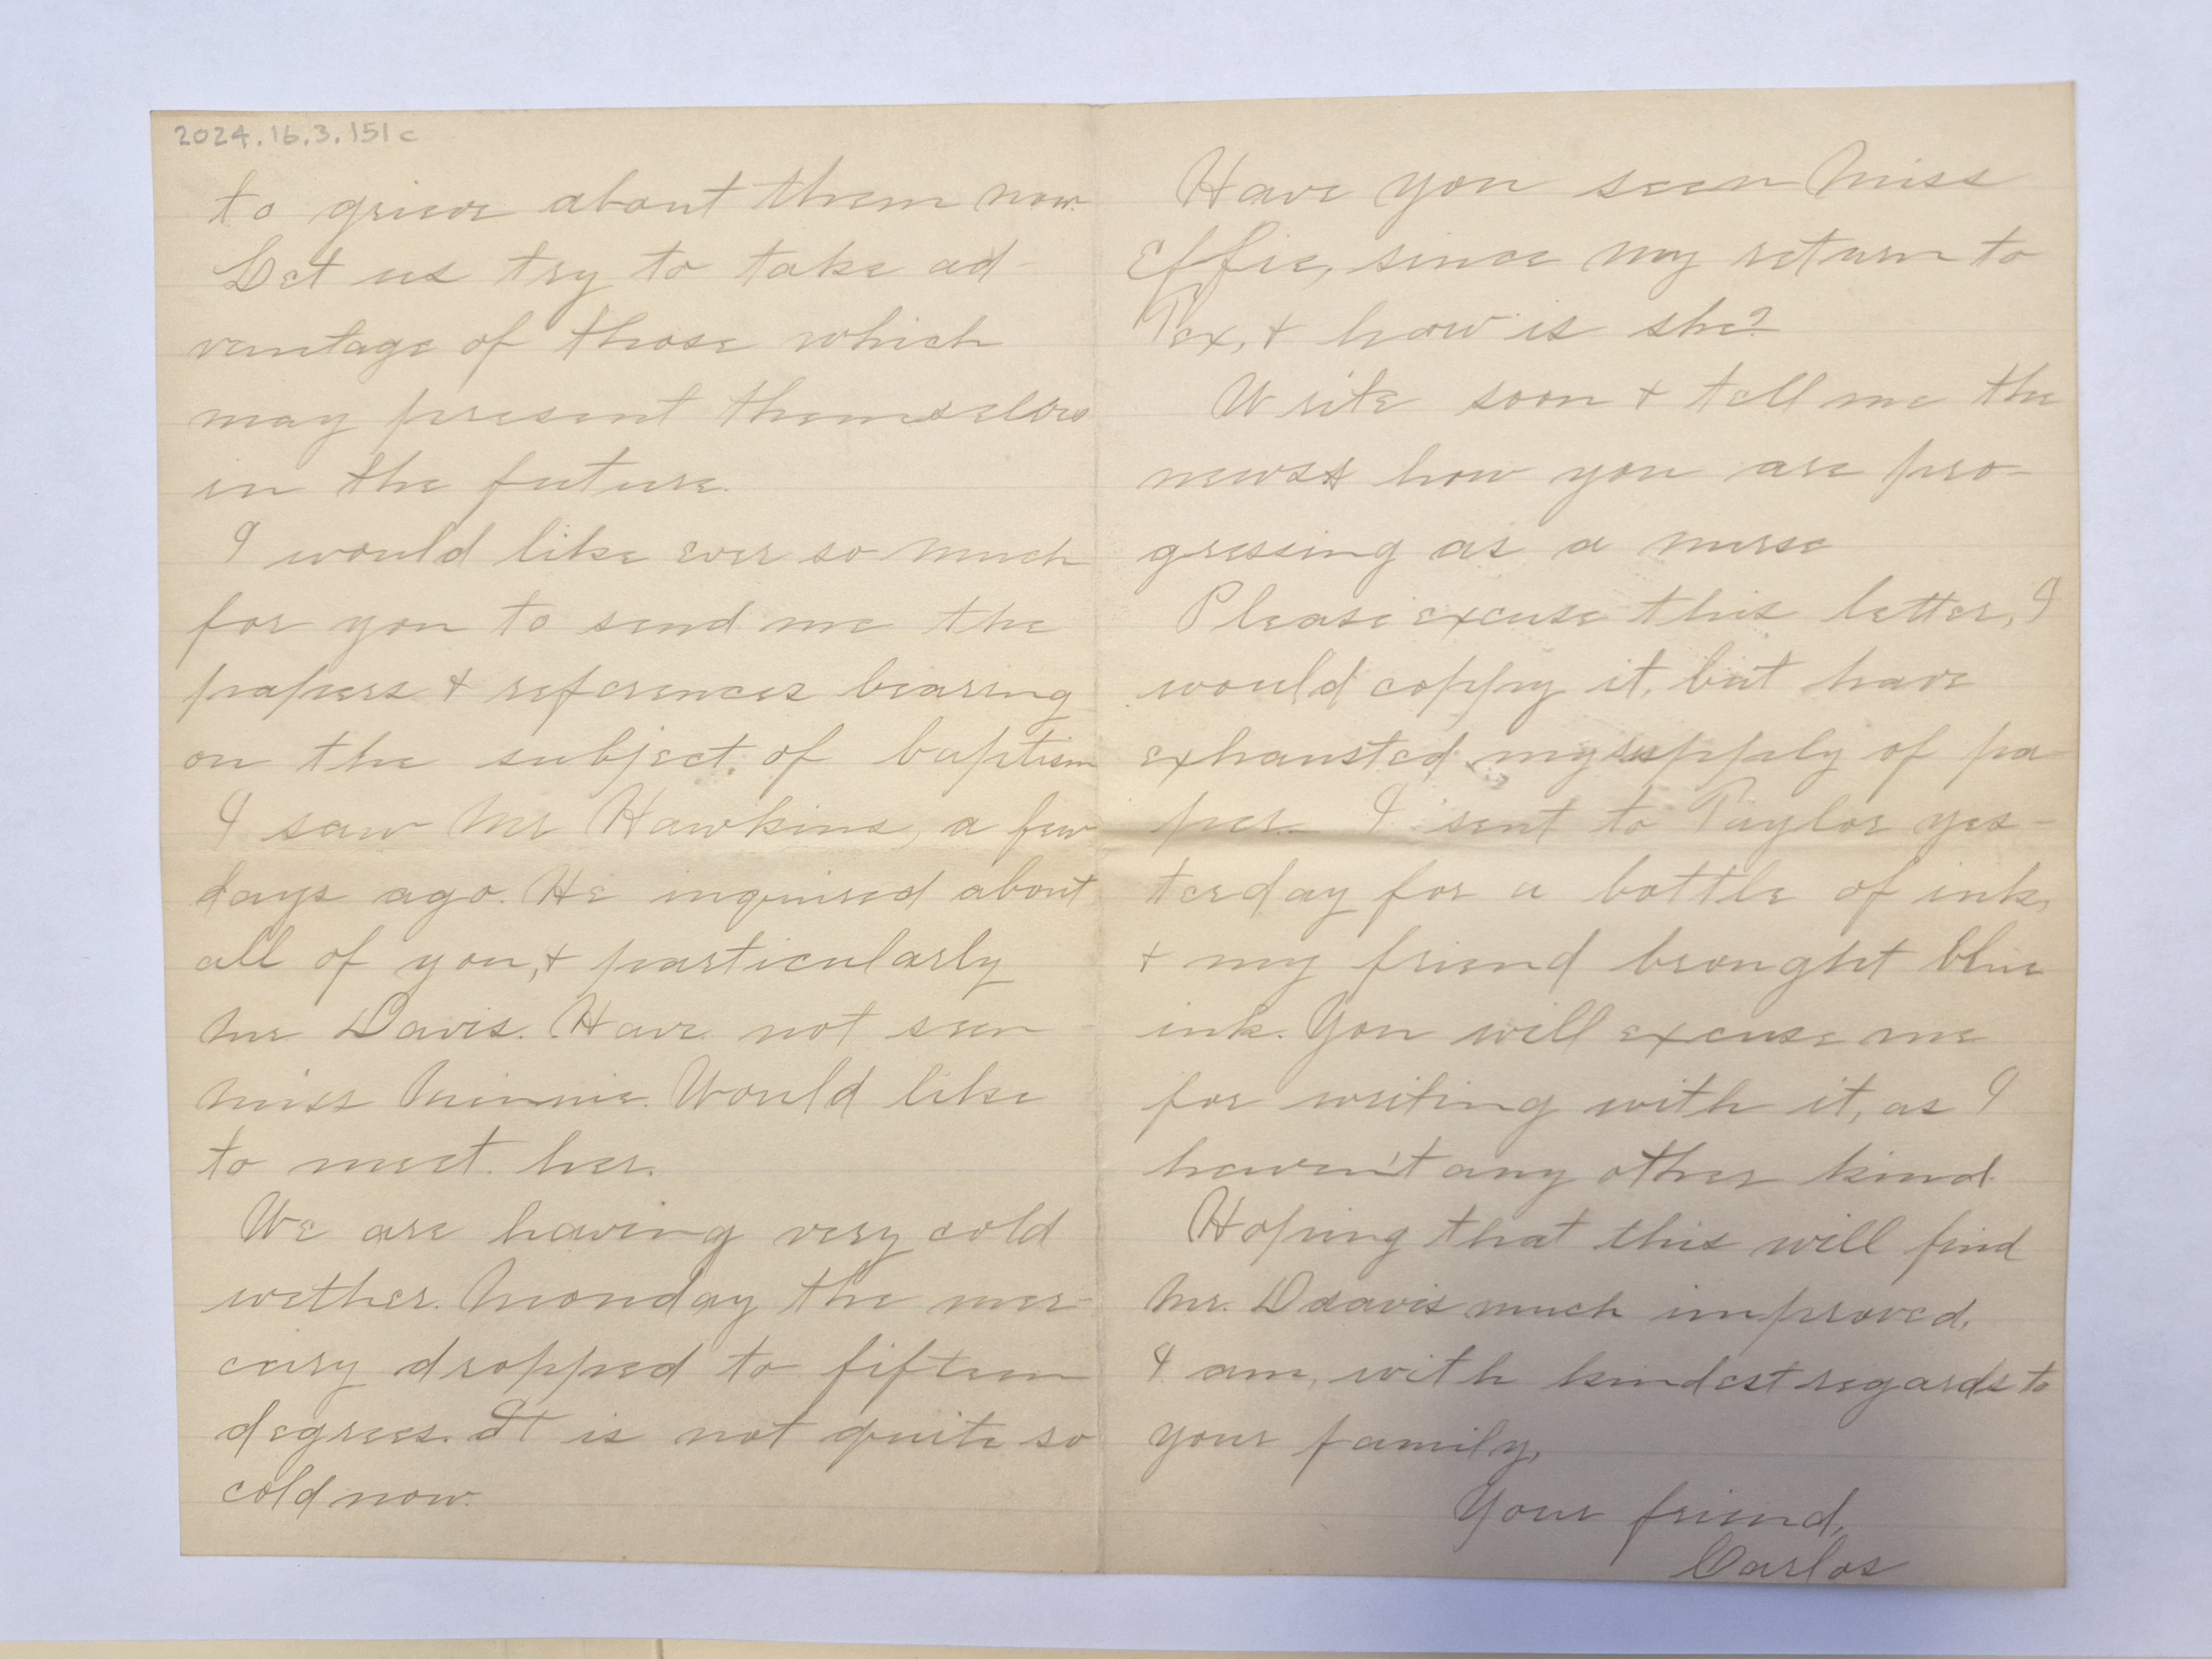 2024.16.3.151c
to grieve about them now.
Let us try to take ad-
vantage of those which
may present themselves
in the future.
I would like ever so much
for you to send me the
papers & references bearing
on the subject of baptism
I saw Mr Hawkins, a few
days ago. He inquired about
all of you, & particularly
Mr Davis. Have not seen
Miss Minnie. Would like
to meet her.
We are having very cold
wether. Monday the mer-
cury dropped to fifteen
degrees. It is not quite so
cold now.
Have you seen Miss
Effie, since my return to
Tex, & how is she?
Write soon & tell me the
news & how you are pro-
gressing as a nurse
Please excuse this letter, I
would coppy it, but have
exhausted my supply of pa-
per. I sent to Taylor yes-
terday for a bottle of ink,
& my friend brought blue
ink. You will excuse me
for writing with it, as I
haven't any other kind.
Hoping that this will find
Mr. Davis much improved,
I am, with kindest regards to
your family,
Your friend,
Carlos